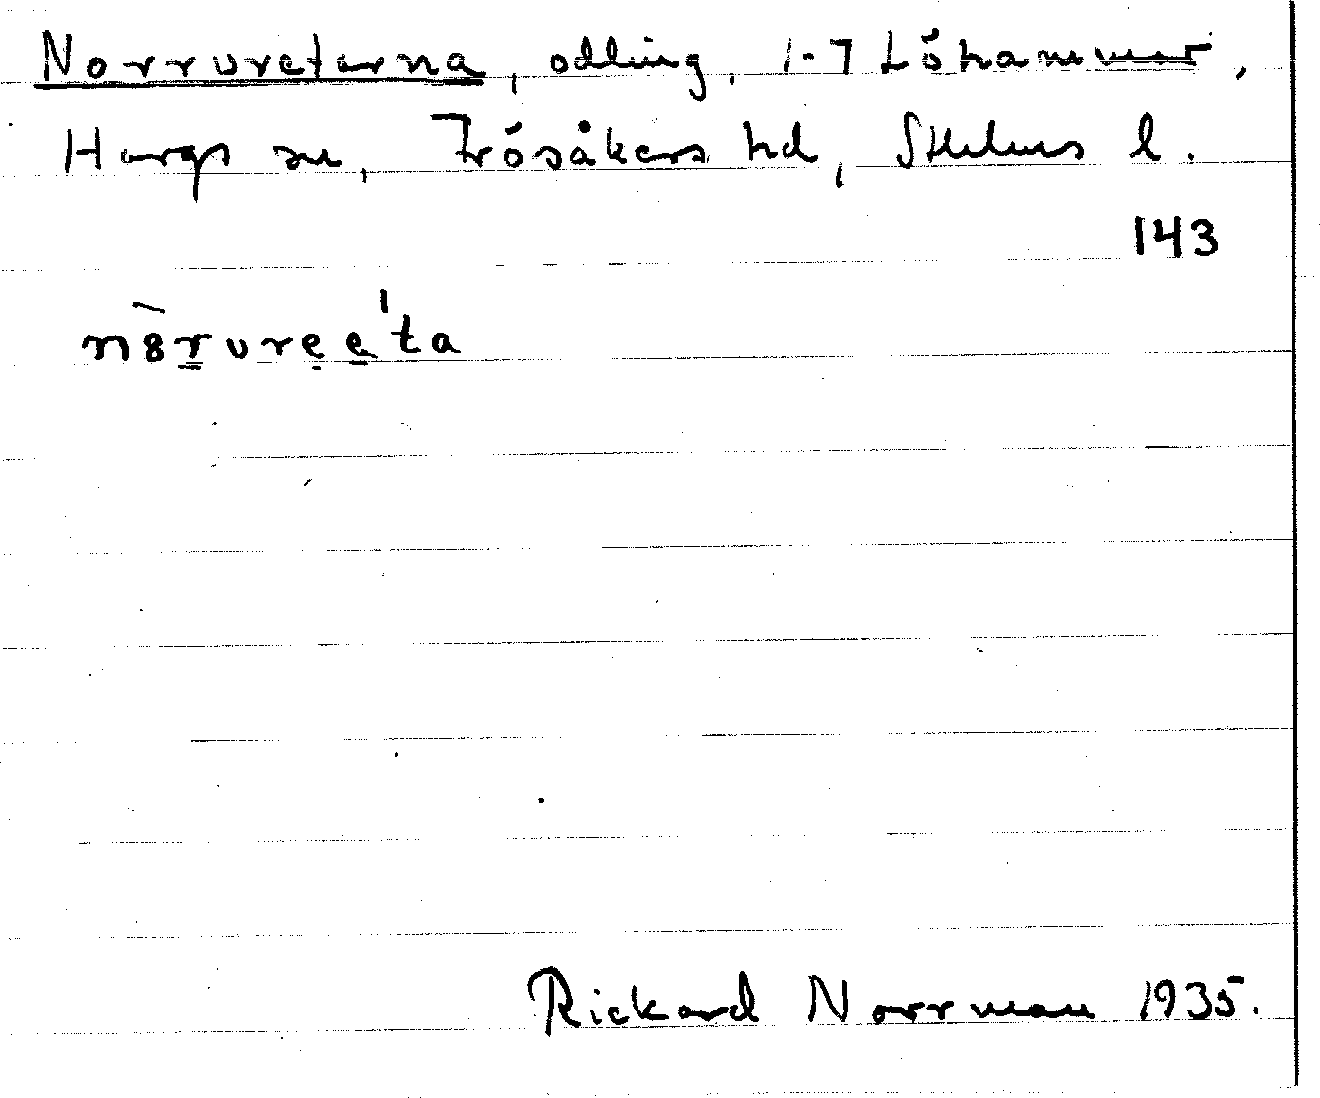 Norrvretarna, odling, 1-7 Löhammar,
Hargs sn, Frösåkers hd, Sthlms l.
143
Rickard Norrman 1935.